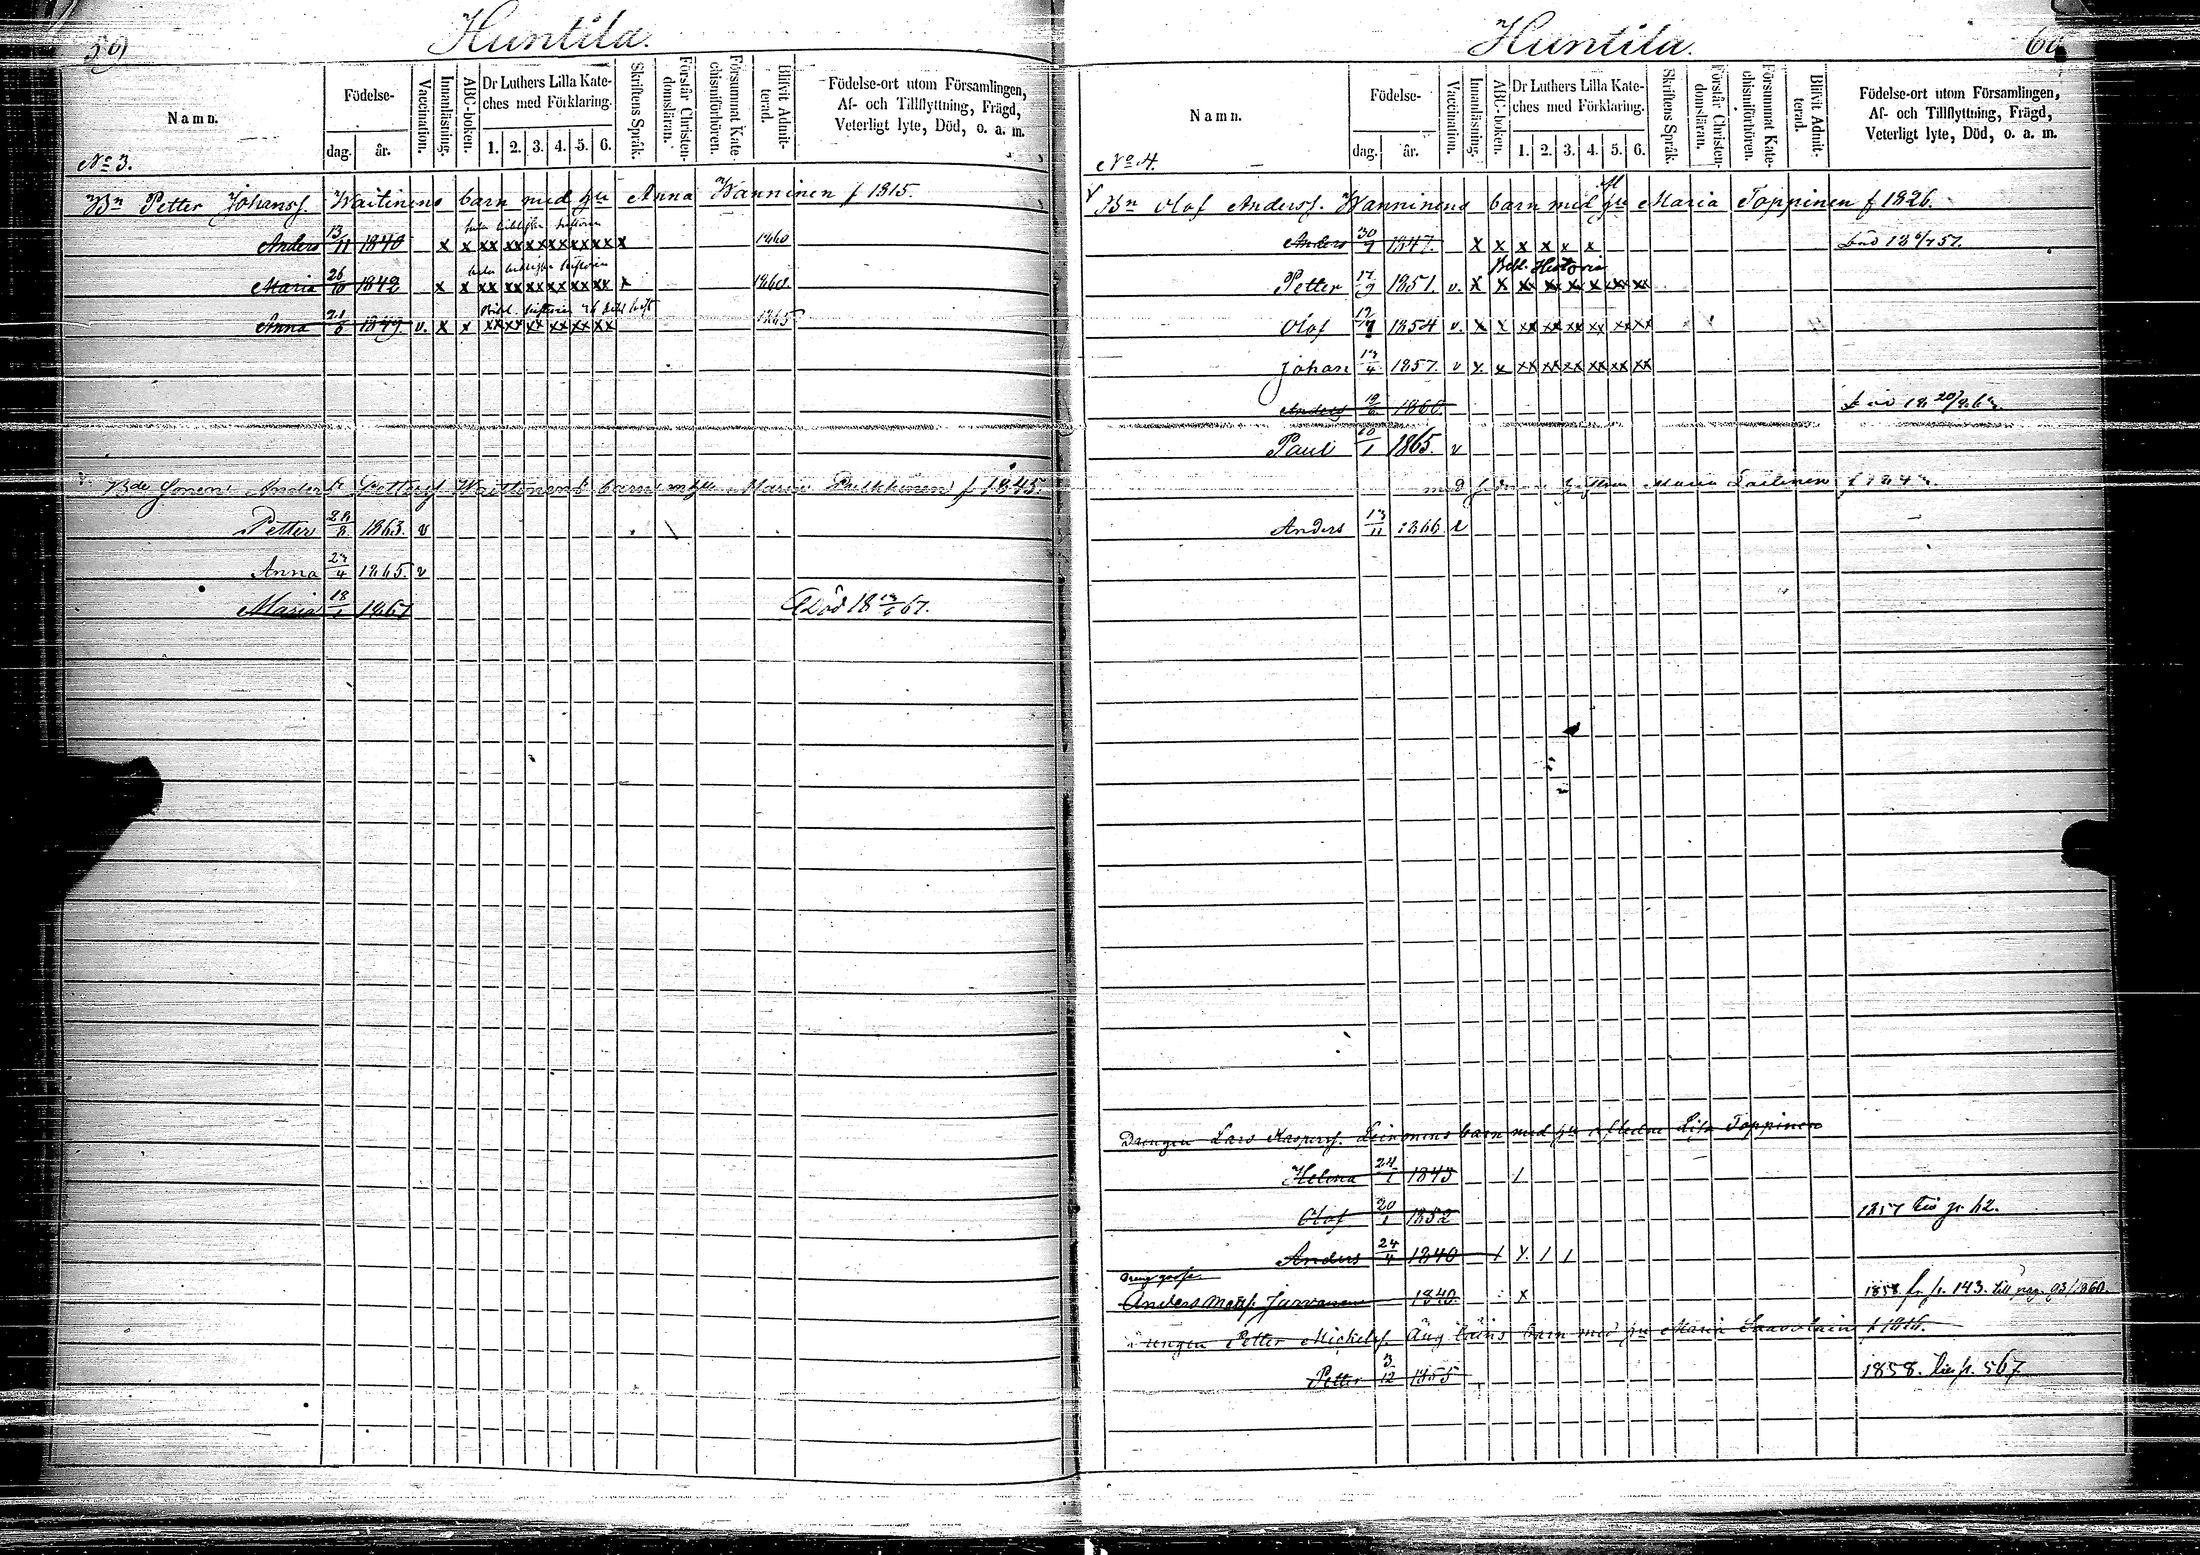 59
Huntila.
Namn.
Födelse-
dag.
år.
Vaccination.
Innanläsning.
ABC-boken.
Dr Luthers Lilla Kate-
ches med Förklaring.
1. 2. 3. 4. 5. 6.
Skriftens Språk.
Förstår Christen-
domsläran.
Försummat Kate-
chismiförhören.
Blifvit Admit-
terad.
Födelse-ort utom Församlingen,
Af- och Tillflyttning, Frägd,
Veterligt lyte, Död, o. a. m.
No 3.
Bn Petter Johansf. Waitinens barn med hu Anna Wanninen f 1815.
Anders 13/11 1840 x x xx xx xx xx xx xx x 1860
Maria 26/10 1842 x x xx xx xx xx xx xx x 1860
Anna 21/5 1849 v. x x xx xx xx xx xx xx 1865
Bde Sonen Anders Pettersf Waittinens barn Maria Pulkkinen f 1845.
Petter 28/8 1863. v
Anna 27/4 1865. v
Maria 18/1 1867
Död 18 67.
60
Huntila.
Namn.
Födelse-
dag.
år.
Vaccination.
Innanläsning.
ABC-boken.
Dr Luthers Lilla Kate-
ches med Förklaring.
1. 2. 3. 4. 5. 6.
Skriftens Språk.
Förstår Christen-
domsläran.
Försummat Kate-
chismiförhören.
Blifvit Admit-
terad.
Födelse-ort utom Församlingen,
Af- och Tillflyttning, Frägd,
Veterligt lyte, Död, o. a. m.
No 4.
Bn Olof Andersf. Wanninens barn med hu Maria Toppinen f 1826.
Anders 30/9 1847. x x x x x x död
Bibl. Historia
Petter 17/9 1851. v. x x xx xx xx x xx xx
Olof 1854 v. x x xx xx xx xx xx xx
Johan 1857. v x x xx xx xx xx xx xx
Anders 1860. död
Paul 10/1 1865. v
med Maria
Anders 13/11 1866 v
Drengen Lars Kaspersf. barn med hu aflidne Lisa Toppinen
Helena 24/1 1845 /
Olof 20/1 1852 1857 till p. 62.
Anders 24/4 1840
Anders Mattsf. 1840 x 1858 fr p. 143. till pag. 93/1860.
Drengen Petter Michelsf. barn med hu Maria
Petter 3/12 1855 1858. p. 567